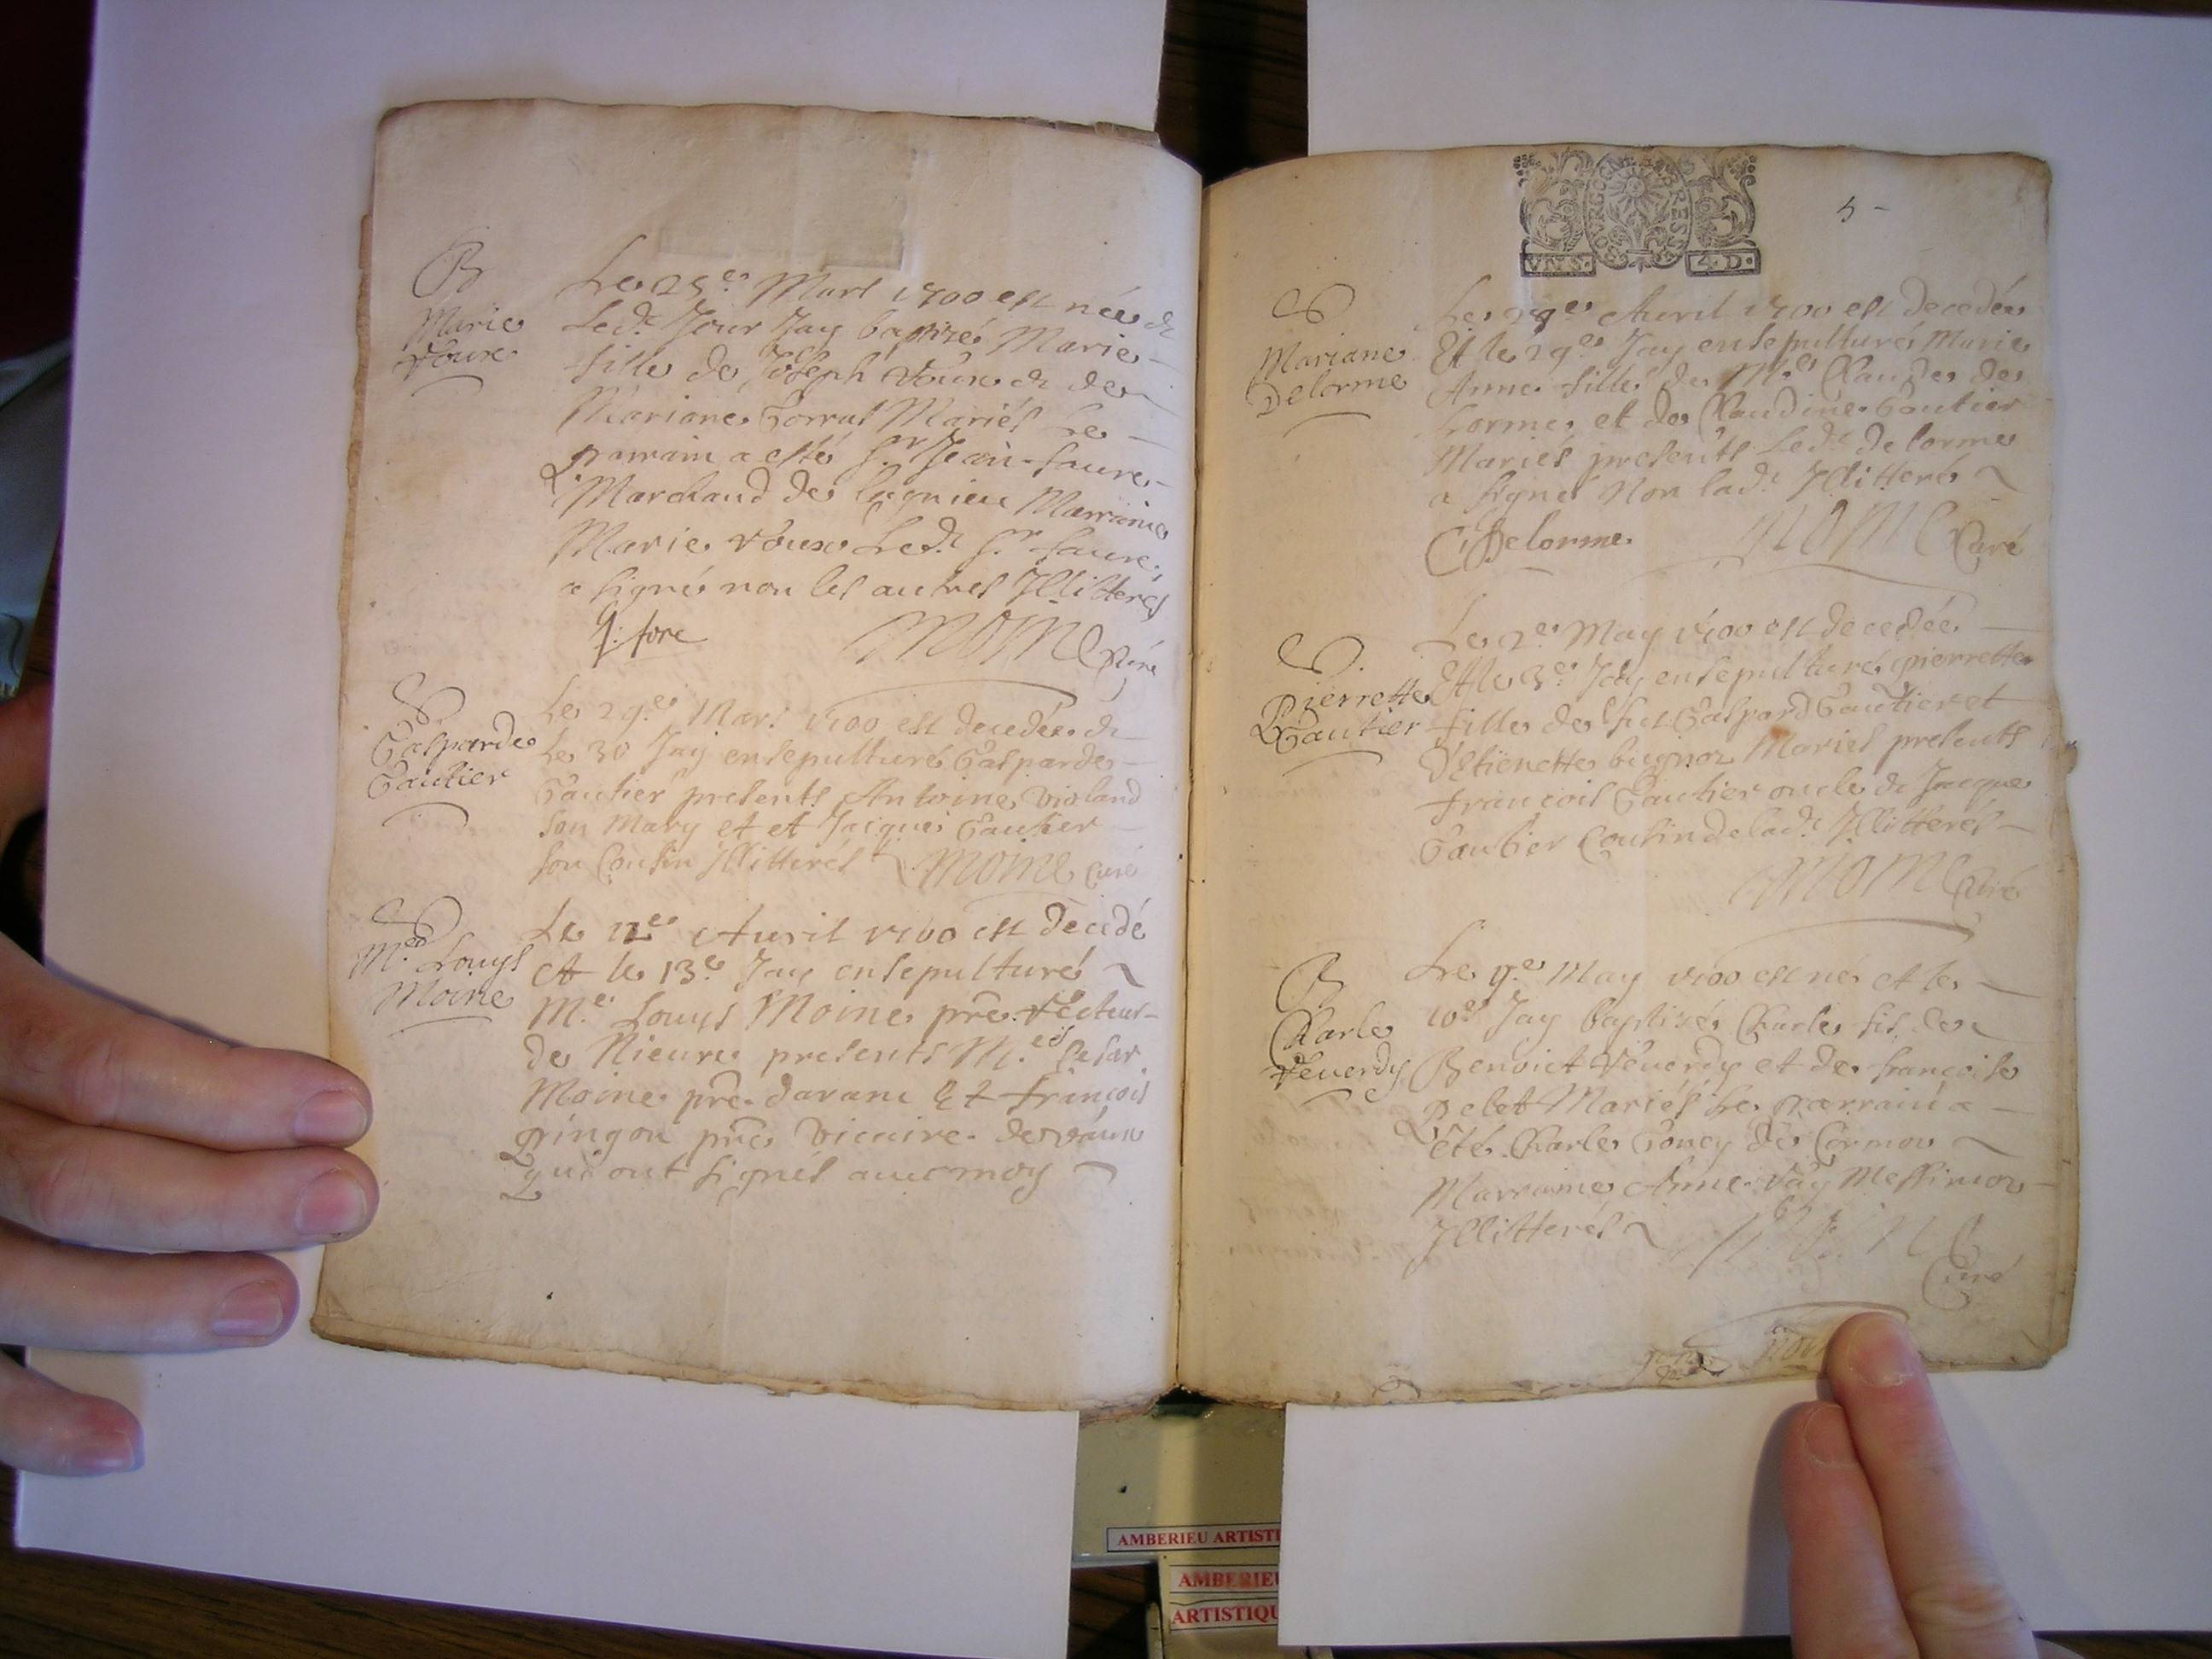 B
Marie
Roux
Le 25e Mars 1700 est née &
Ledt Jour Jay baptizé Marie
fille de Joseph Roux & de
Mariane Gorrat Mariés Le
parrain a esté Sr Jean faure
Marchand de lagnieu Marraine
Marie roux Ledt Sr faure
a signé non les autres Illitterés
J: fore MOINE Curé
S
Gasparde
Gautier
Le 29e Mars 1700 est decedée &
Le 30 Jay ensepulturé Gasparde
Gautier presents Antoine Violand
son Mary et et Jacques Gautier
son Cousin Illitterés MOINE Curé
S
Mre Louys
Moine
Le 12e Auril 1700 est decedé
et le 13e Jay ensepulturé
Me Louys Moine pre recteur
de Nieure presents Mres Cesar
Moine pre davane Et françois
pringon pre Vicaire de vaux
qui ont signés auec moy
VN S. 4 D.
BOVRGOGNE BRESSE
5
S
Mariane
Delorme
Le 28e Auril 1700 est decedée
Et le 29e Jay ensepulturé Marie
Anne fille de Me Claude de
Lorme et de Claudine Gautier
Mariés presents Ledt de lorme
a signé Non ladt Illitteré
C Delorme MOINE Curé
S
Pierrette
Gautier
Le 2e May 1700 est decedée
Et le 3e Jay ensepulturé pierrette
fille de feu Gaspard Gautier et
D'Etienette bugnoz Mariés presents
francois Gautier oncle & Jacque
Gautier Cousin de ladt Illitterés
MOINE Curé
B
Charle
Reuerdy
Le 9e May 1700 est né et le
10e Jay baptisé Charle fis de
Benoict Reuerdy et de francoise
Pelet Mariés Le parrain a
été Charle Goncy de Cormou
Marraine Anne Vay Messimou
Illitterés MOINE
Curé
AMBERIEU ARTISTI
AMBERIEU
ARTISTIQU